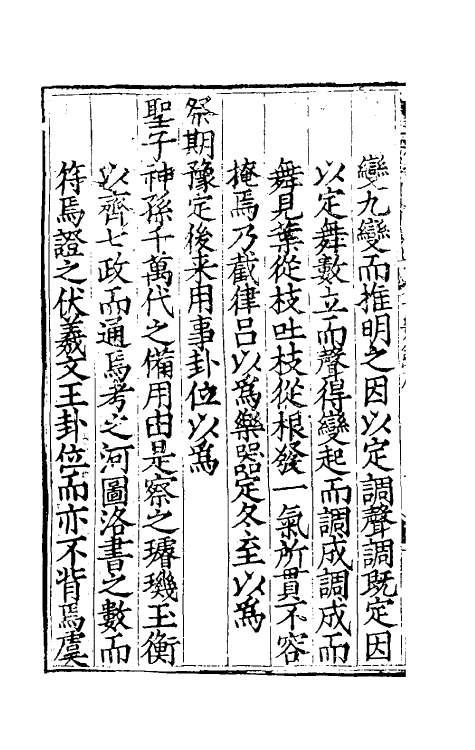 變九變而推明之因以定調聲調既定因
以定舞數立而聲得變起而調成調成而
舞見葉從枝吐枝從根發一氣所貫不容
掩焉乃截律呂以為樂器定冬至以為
祭期豫定後来用事卦位以為
聖子神孫千萬代之備用由是察之璿璣玉衡
以齊七政而通焉考之河圖洛書之數而
符焉證之伏羲文王卦位而亦不背焉虞